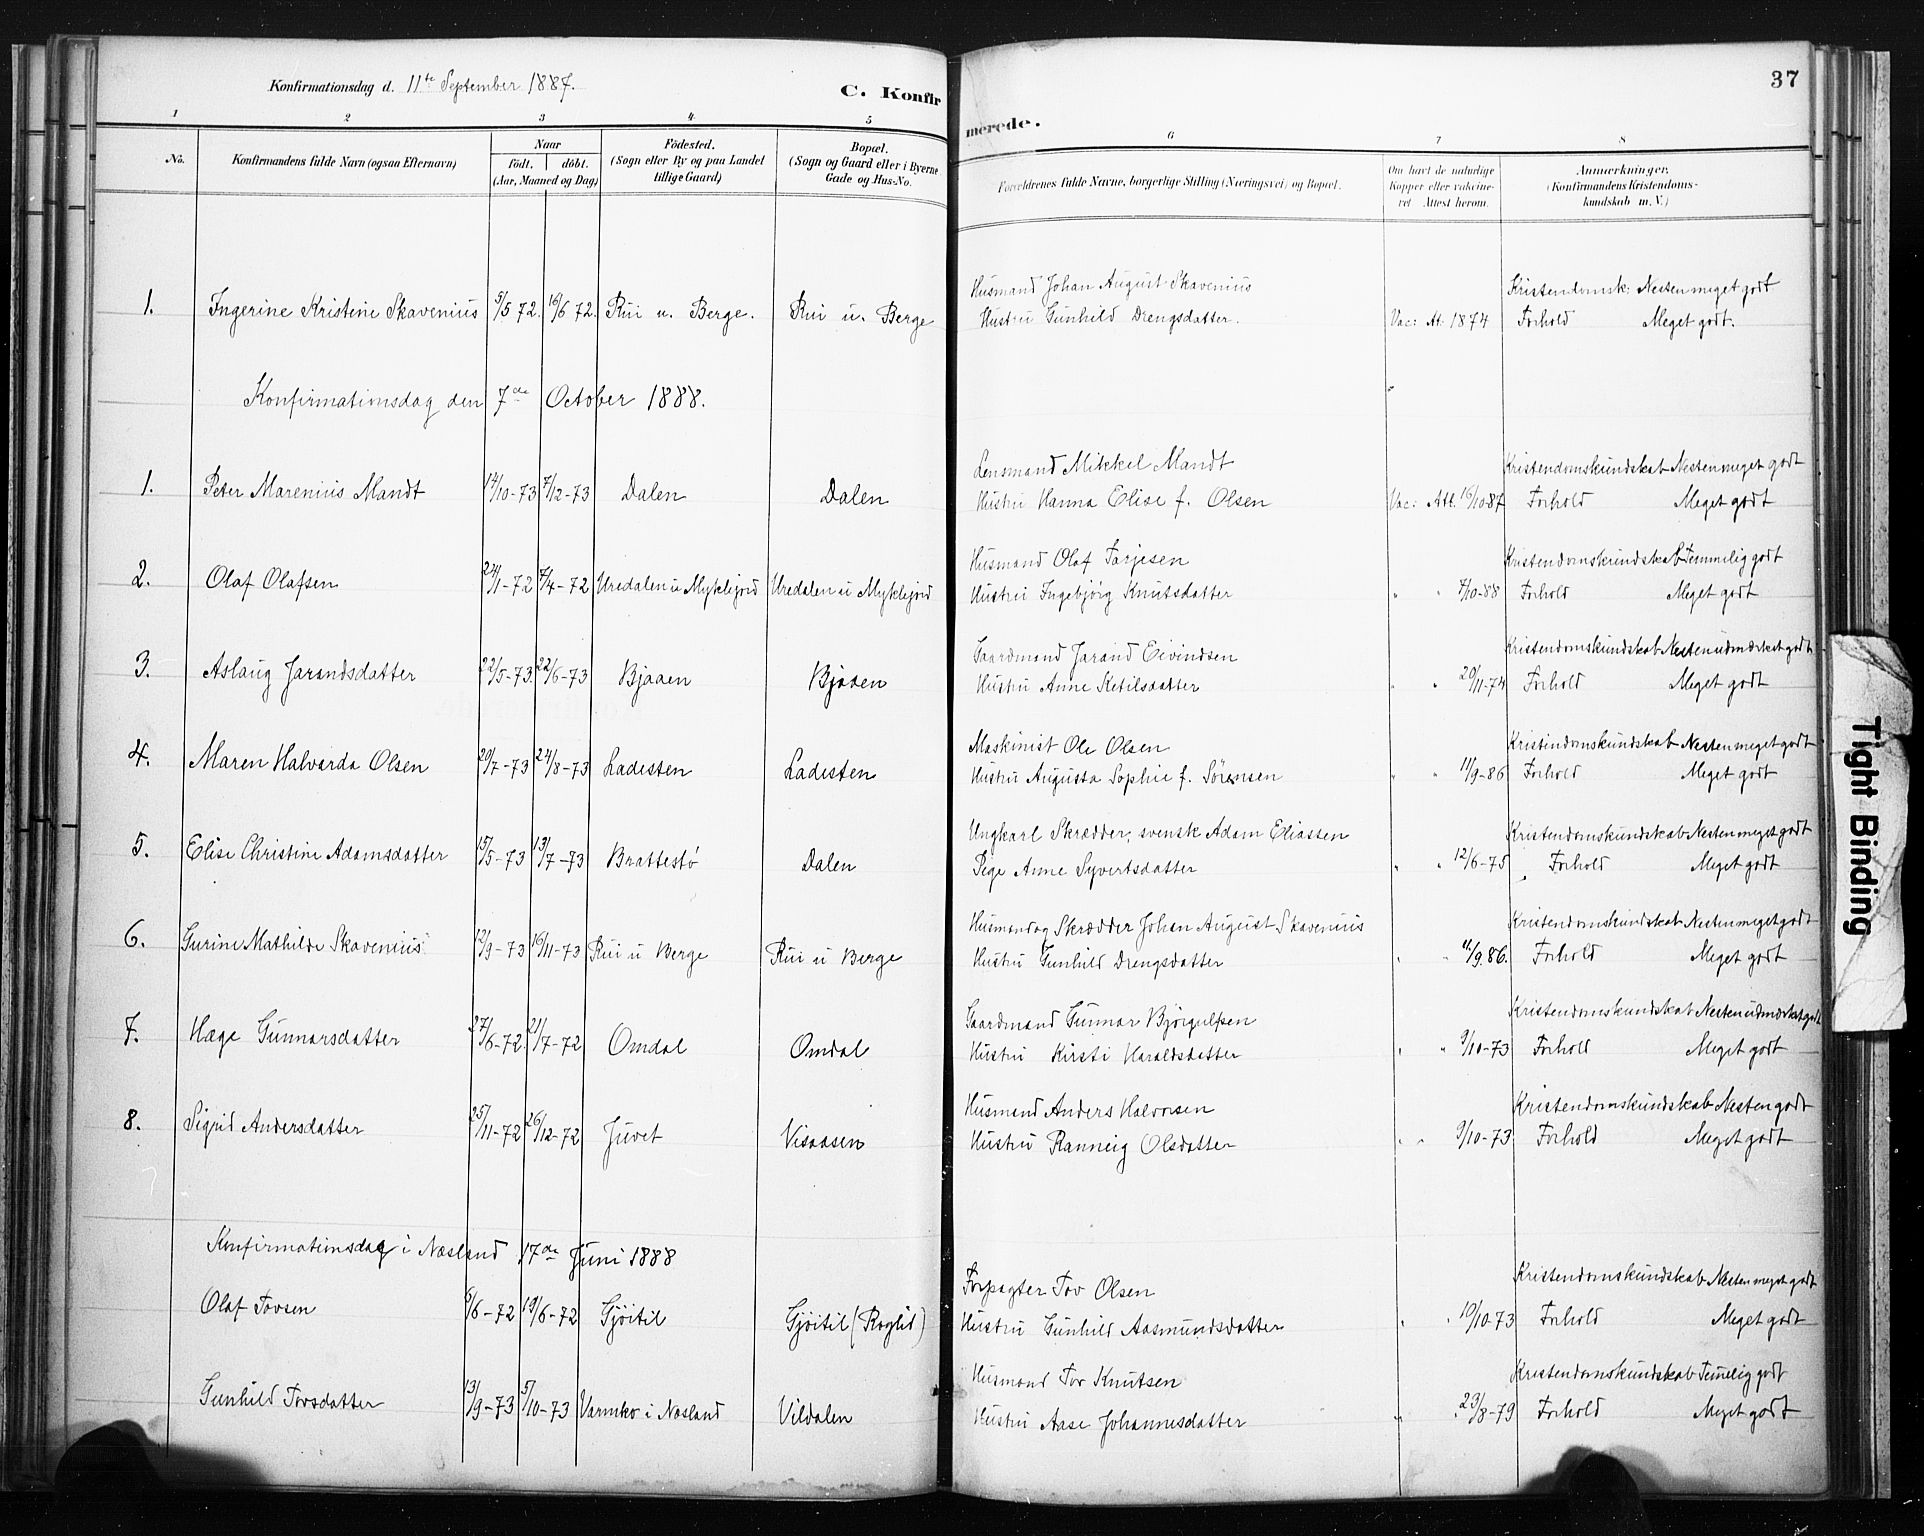 Konfirmationsdag d. 11te September 1887.
C. Konfirmerede.
37
1 2 3 4 5 6 7 8
No.
Konfirmandens fulde Navn (ogsaa Efternavn)
Naar
født. døbt.
(Aar, Maaned og Dag)
Fødested.
(Sogn eller By og paa Landet
tillige Gaard)
Bopæl.
(Sogn og Gaard eller i Byerne
Gade og Hus-No.
Forældrenes fulde Navne, borgerlige Stilling (Næringsvei) og Bopæl.
Om havt de naturlige
Kopper eller vakcine-
ret Attest herom.
Anmærkninger.
(Konfirmandens Kristendoms-
kundskab m. V.)
Husmand Johan August Skavenius Kristendomsk: Nesten meget godt
1. Ingerine Kristine Skavenius 5/5 72. 16/6 72. Rui u. Berge. Rui u. Berge Hustru Gunhild Drengsdatter. Vac: At. 1874 Forhold Meget godt.
Konfirmationsdag den 7de October 1888.
Lensmand Mikkel Mandt Kristendomskundskab Nesten meget godt
1. Peter Marenius Mandt 14/10-73 7/12-73 Dalen Dalen Hustru Hanna Elise f. Olsen Vac: Att. 16/10-87 Forhold Meget godt
Husmand Olaf Tarjesen Kristendomskundskab Temmelig godt
2. Olaf Olafsen 24/1-72 7/4-72 Uredalen u Myklejord Uredalen u Myklejord Hustru Ingebjørg Knutsdatter " " 7/10-88 Forhold Meget godt
Gaardmand Jarand Eivindsen Kristendomskundskab Nesten udmærket godt
3. Aslaug Jarandsdatter 22/5-73. 22/6-73 Bjaaen Bjaaen Hustru Anne Ketilsdatter " " 20/11-74 Forhold Meget godt
Maskinist Ole Olsen Kristendomskundskab Nesten meget godt
4. Maren Halvarda Olsen 20/7-73 24/8-73 Ladesten Ladesten Hustru Augusta Sophie f. Sørensen " " 11/9-86 Forhold Meget godt
Ungkarl Skrædder, svensk Adam Eliassen Kristendomskundskab Nesten meget godt
5. Elise Christine Adamsdatter 15/5-73 13/7-73 Brattestø Dalen Pige Anne Syvertsdatter " " 12/6-75 Forhold Meget godt
Husmandog Skrædder Johan August Skavenius Kristendomskundskab Nesten meget godt
6. Gurine Mathilde Skavenius 12/9-73 16/11-73 Rui u Berge Rui u Berge Hustru Gunhild Drengsdatter " " 11/9.86. Forhold Meget godt
Gaardmand Gunnar Bjørgulfsen Kristendomskundskab Nesten udmærket godt
7. Hæge Gunnarsdatter 27/6-72. 21/7-72 Omdal Omdal Hustru Kirsti Haraldsdatter " " 9/10-73 Forhold Meget godt
Husmand Anders Halvorsen Kristendomskundskab Nesten godt
8. Sigrid Andersdatter 25/11-72 26/12-72 Juvet Visaasen Hustru Ranneig Olsdatter " " 9/10-73 Forhold Meget godt
Konfirmationsdag i Næsland 17de Juni 1888
Forpagter Tov Olsen Kristendomskundskab Nesten meget godt
Olaf Tovsen 6/6-72 19/6-72 Gjøitil Gjøitil Hustru Gunhild Aasmundsdatter " " 10/10-73 Forhold Meget godt
Husmand Tov Knutsen Kristendomskundskab Temelig godt
Gunhild Tovsdatter 13/9-73 5/10-73 i Næsland Vildalen Hustru Aase Johannesdatter " " 23/8-79 Forhold Meget godt
Tight Binding